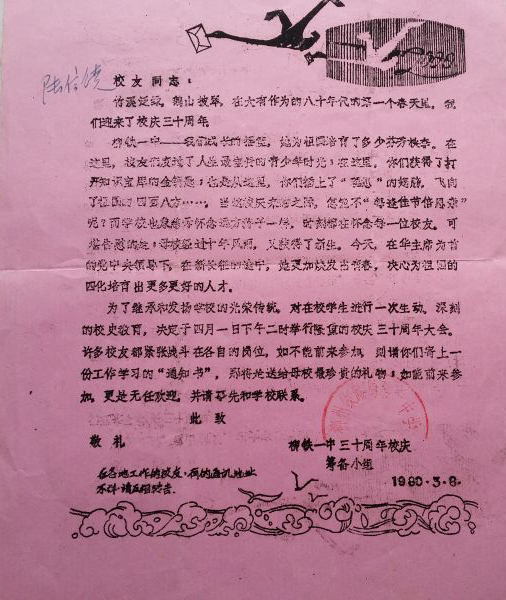 校友同志：
竹溪泛绿，鹅山披翠，在大有作为的八十年代的第一个春天里，我
们迎来了校庆三十周年。
柳铁一中——我们成长的摇篮，她为祖国培育了多少芬芳桃李。在
这里，校友们度过了人生最宝贵的青少年时光；在这里，你们获得了打
开知识宝库的金钥匙；也是从这里，你们插上了“理想”的翅膀，飞向
了祖国的四面八方……，当校庆来临之际，您能不“每逢佳节倍思亲”
呢？而学校也象慈母怀念远方孩子一样，时刻都在怀念每一位校友。可
堪告慰的是：母校经过十年风雨，又获得了新生。今天，在华主席为首
的党中央领导下，在新长征的途中，她更加焕发出青春，决心为祖国的
四化培育出更多更好的人才。
为了继承和发扬学校的光荣传统，对在校学生进行一次生动、深刻
的校史教育，决定于四月一日下午二时举行隆重的校庆三十周年大会。
许多校友都紧张战斗在各自的岗位，如不能前来参加，则请你们寄上一
份工作学习的“通知书”，即将是送给母校最珍贵的礼物；如能前来参
加，更是无任欢迎，并请事先和学校联系。
此致
敬礼
柳铁一中三十周年校庆
筹备小组
1980·3·8·
在各地工作的校友，因的通讯地址
不详，请互相转告。